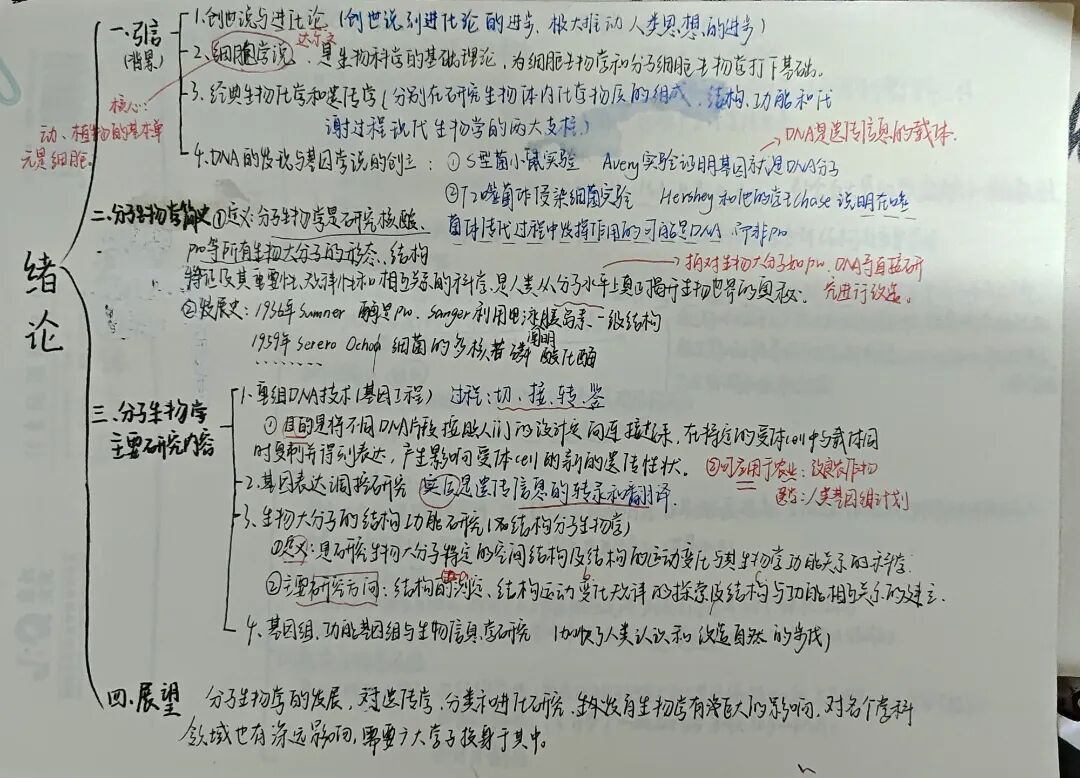 绪论
一.引言
(背景)
1.创世说与进化论 (创世说到进化论的进步,极大推动人类思想的进步)
达尔文
2.细胞学说、是生物科学的基础理论,为细胞生物学和分子细胞生物学打下基础。
核心:
动、植物的基本单
元是细胞。
3.经典生物化学和遗传学(分别在研究生物体内化学物质的组成、结构、功能和代
谢过程现代生物学的两大支柱)
4.DNA的发现与基因学说的创立:①S型菌小鼠实验 Avery实验证明基因就是DNA分子
DNA是遗传信息的载体.
②T2噬菌体侵染细菌实验 Hershey和他的学生Chase说明在噬
菌体传代过程中发挥作用的可能是DNA 而非pro
二.分子生物学简史 ①定义:分子生物学是研究核酸、
pro等所有生物大分子的形态、结构
特征及其重要性、规律性和相互关系的科学,是人类从分子水平上真正揭开生物世界的奥秘。
指对生物大分子如pro、DNA等直接研
究进行改造。
②发展史:1936年Sumner 酶是pro. Sanger利用电泳 胰岛素、一级结构
1959年Severo Ochoa 细菌的多核苷磷酸化酶
阐明
........
三.分子生物学
主要研究内容
1.重组DNA技术(基因工程) 过程:切、接、转、鉴
①目的是将不同DNA片段按照人们的设计定向连接起来,在特定的受体cell中与载体同
时复制并得到表达,产生影响受体cell的新的遗传性状。
②可应用于农业:改良农作物
医学:人类基因组计划
2.基因表达调控研究 实质是遗传信息的转录和翻译.
3.生物大分子的结构功能研究(又名结构分子生物学)
①定义:是研究生物大分子特定的空间结构及结构的运动变化与其生物学功能关系的科学.
②主要研究方向:结构的测定、结构运动变化规律的探索及结构与功能相互关系的建立.
4.基因组、功能基因组与生物信息学研究 (加快了人类认识和改造自然的步伐)
四.展望
分子生物学的发展,对遗传学,分类和进化研究,发育生物学有着巨大的影响,对各个学科
领域也有深远影响,需要广大学子投身于其中。